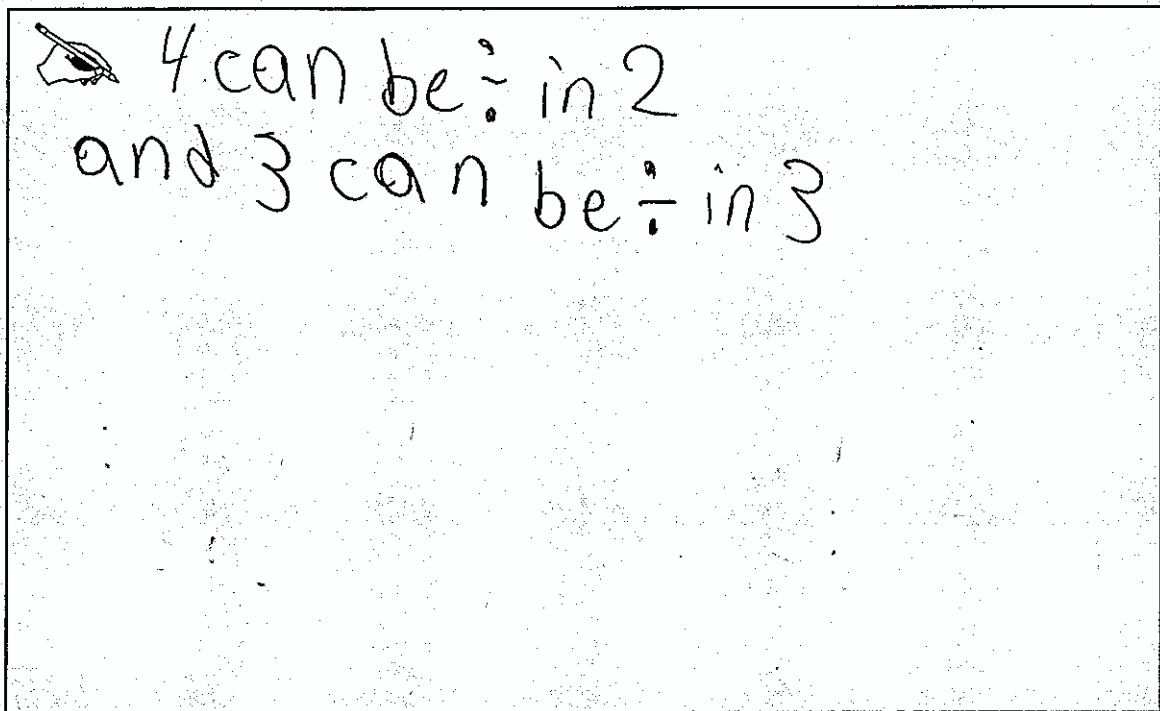 4 can be ÷ in 2
and 3 can be ÷ in 3